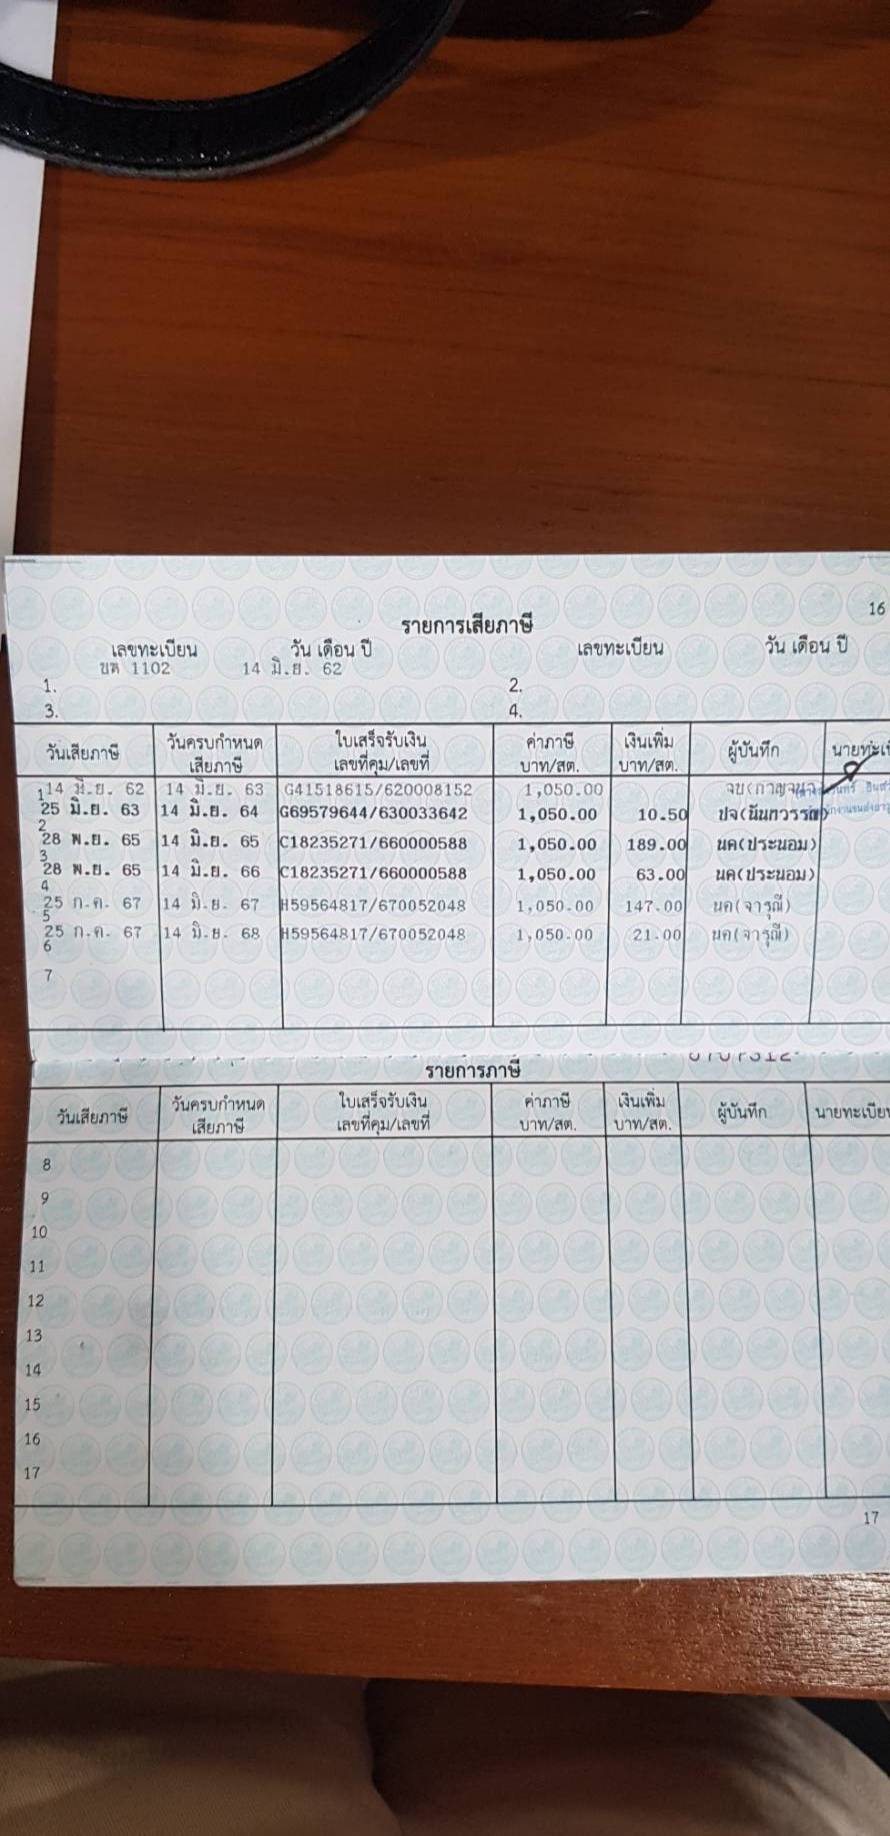 16
รายการเสียภาษี
เลขทะเบียน วัน เดือน ปี เลขทะเบียน วัน เดือน ปี
1102 14 มิ.ย. 62
1. 2.
3. 4.
วันเสียภาษี วันครบกำหนดเสียภาษี ใบเสร็จรับเงิน เลขที่คุม/เลขที่ ค่าภาษี บาท/สต. เงินเพิ่ม บาท/สต. ผู้บันทึก
1 14 มิ.ย. 62 14 มิ.ย. 63 G41518615/620008152 1,050.00
2 25 มิ.ย. 63 14 มิ.ย. 64 G69579644/630033642 1,050.00 10.50
3 28 พ.ย. 65 14 มิ.ย. 65 C18235271/660000588 1,050.00 189.00 นค(ประนอม)
4 28 พ.ย. 65 14 มิ.ย. 66 C18235271/660000588 1,050.00 63.00 นค(ประนอม)
5 25 ก.ค. 67 14 มิ.ย. 67 H59564817/670052048 1,050.00 147.00 นค(จารุณี)
6 25 ก.ค. 67 14 มิ.ย. 68 H59564817/670052048 1,050.00 21.00 นค(จารุณี)
7
รายการภาษี
วันเสียภาษี วันครบกำหนดเสียภาษี ใบเสร็จรับเงิน เลขที่คุม/เลขที่ ค่าภาษี บาท/สต. เงินเพิ่ม บาท/สต. ผู้บันทึก
8
9
10
11
12
13
14
15
16
17
17